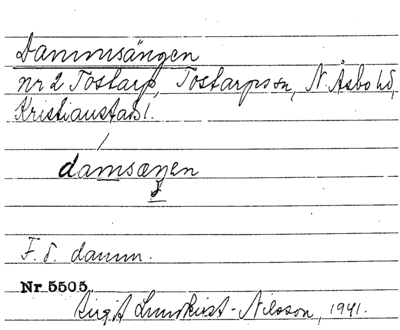 Dammsängen
nr 2 Tostarp, Tostarps sn, N. Åsbo hd,
Kristianstad l.
damsæŋen
F. d. damm.
Nr 5505.
Birgit Lundkvist-Nilsson, 1941.